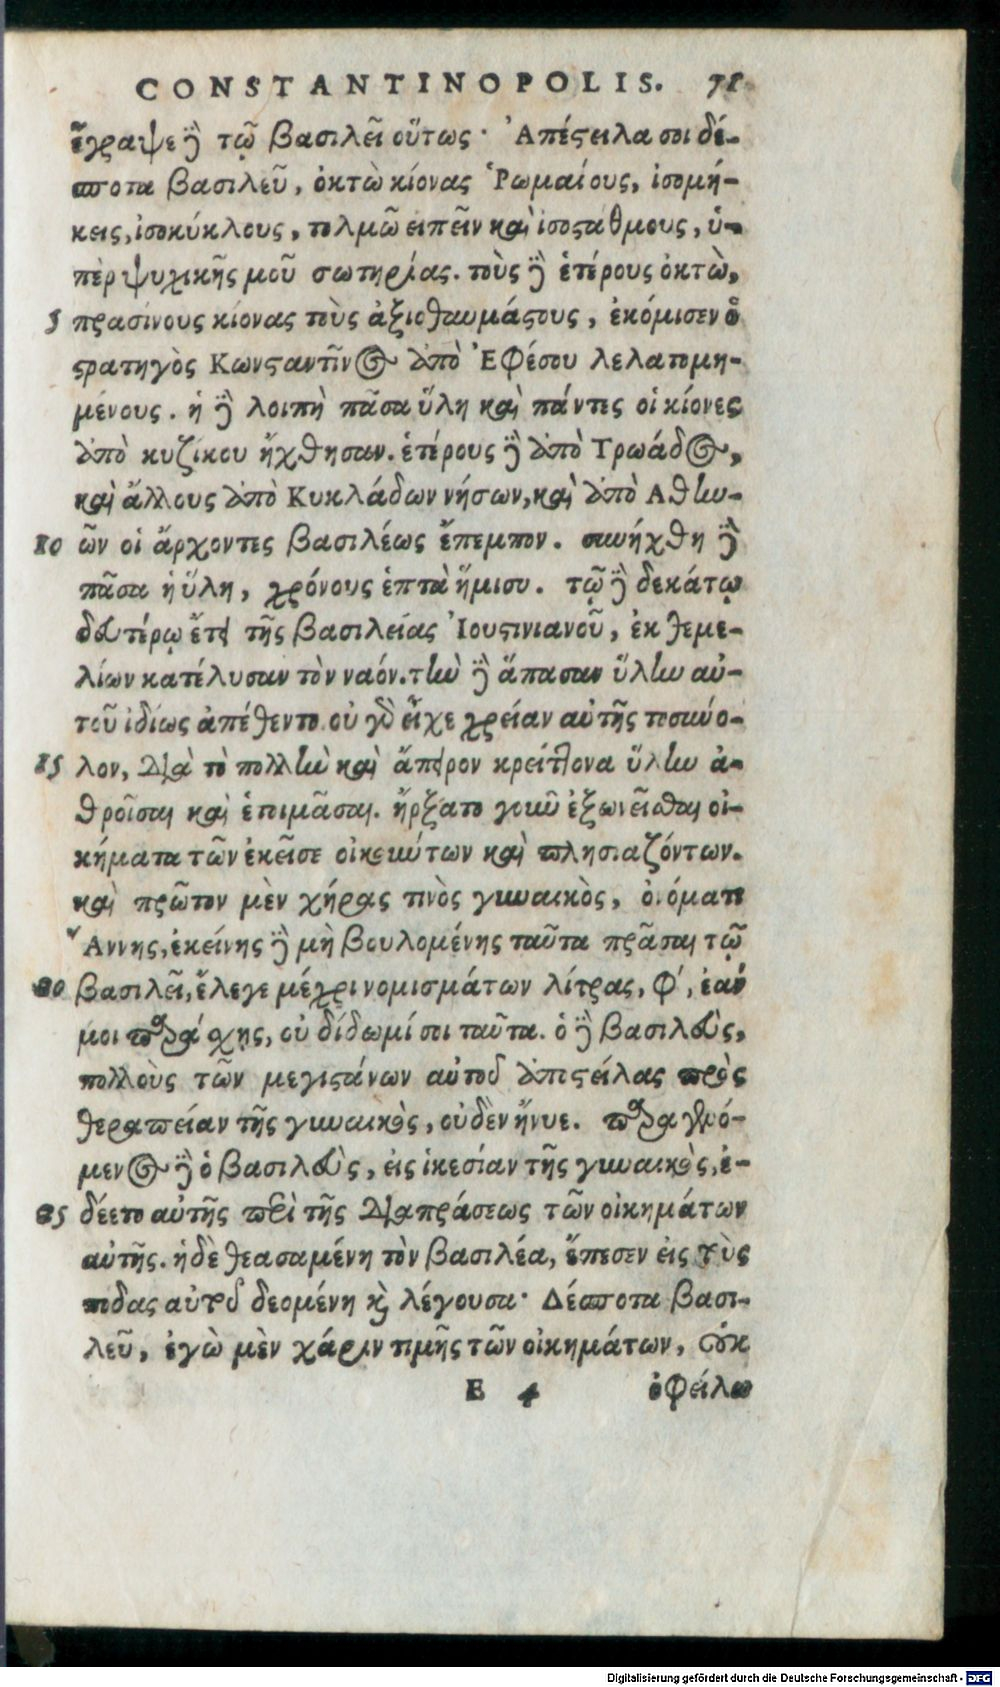 CONSTANTINOPOLIS. 71
ἔγραψε δὲ τῷ βασιλεῖ οὕτως· Ἀπέστειλα σοι δέ-
σποτα βασιλεῦ, ὀκτὼ κίονας Ῥωμαίους, ἰσομή-
κεις, ἰσοκύκλους, τολμῶ εἰπεῖν καὶ ἰσοστάθμους, ὑ-
πὲρ ψυχικῆς μοῦ σωτηρίας. τοὺς δὲ ἑτέρους ὀκτὼ,
5 πρασίνους κίονας τοὺς ἀξιοθαυμάστους, ἐκόμισεν ὁ
στρατηγὸς Κωνσταντῖνος ἀπὸ Ἐφέσου λελατομη-
μένους. ἡ δὲ λοιπὴ πᾶσα ὕλη καὶ πάντες οἱ κίονες
ἀπὸ κυζίκου ἤχθησαν. ἑτέρους δὲ ἀπὸ Τρωάδος,
καὶ ἄλλους ἀπὸ Κυκλάδων νήσων, καὶ ἀπὸ Αθην-
80 ῶν οἱ ἄρχοντες βασιλέως ἔπεμπον. συνήχθη δὲ
πᾶσα ἡ ὕλη, χρόνους ἑπτὰ ἥμισυ. τῷ δὲ δεκάτῳ
δευτέρῳ ἔτει τῆς βασιλείας Ἰουστινιανοῦ, ἐκ θεμε-
λίων κατέλυσαν τὸν ναόν. τὴν δὲ ἅπασαν ὕλην αὐ-
τοῦ ἰδίως ἀπέθεντο οὐ γὰρ εἶχε χρείαν αὐτῆς τοσαύο-
85 λον, διὰ τὸ πολλὴν καὶ ἄπειρον κρείττονα ὕλην ἀ-
θροῖσαι καὶ ἑτοιμᾶσαι. ἤρξατο γοῦν ἐξωνεῖσθαι οἰ-
κήματα τῶν ἐκεῖσε οἰκούντων καὶ πλησιαζόντων.
καὶ πρῶτον μὲν χήρας τινὸς γυναικὸς, ὀνόματι
Ἄννης, ἐκείνης δὲ μὴ βουλομένης ταῦτα πρᾶσαι τῷ
90 βασιλεῖ, ἔλεγε μέχρι νομισμάτων λίτρας, φʹ, ἐάν
μοι παράσχῃς, οὐ δίδωμί σοι ταῦτα. ὁ δὲ βασιλεὺς,
πολλοὺς τῶν μεγιστάνων αὐτοῦ ἀποστείλας πρὸς
θεραπείαν τῆς γυναικὸς, οὐδὲν ἤνυε. παραγενό-
μενος δὲ ὁ βασιλεὺς, εἰς ἱκεσίαν τῆς γυναικὸς, ἐ-
95 δέετο αὐτῆς περὶ τῆς διαπράσεως τῶν οἰκημάτων
αὐτῆς. ἡ δὲ θεασαμένη τὸν βασιλέα, ἔπεσεν εἰς τοὺς
πόδας αὐτοῦ δεομένη καὶ λέγουσα· Δέσποτα βασι-
λεῦ, ἐγὼ μὲν χάριν τιμῆς τῶν οἰκημάτων, οὐκ
E 4 ὀφείλω
Digitalisierung gefördert durch die Deutsche Forschungsgemeinschaft - DFG